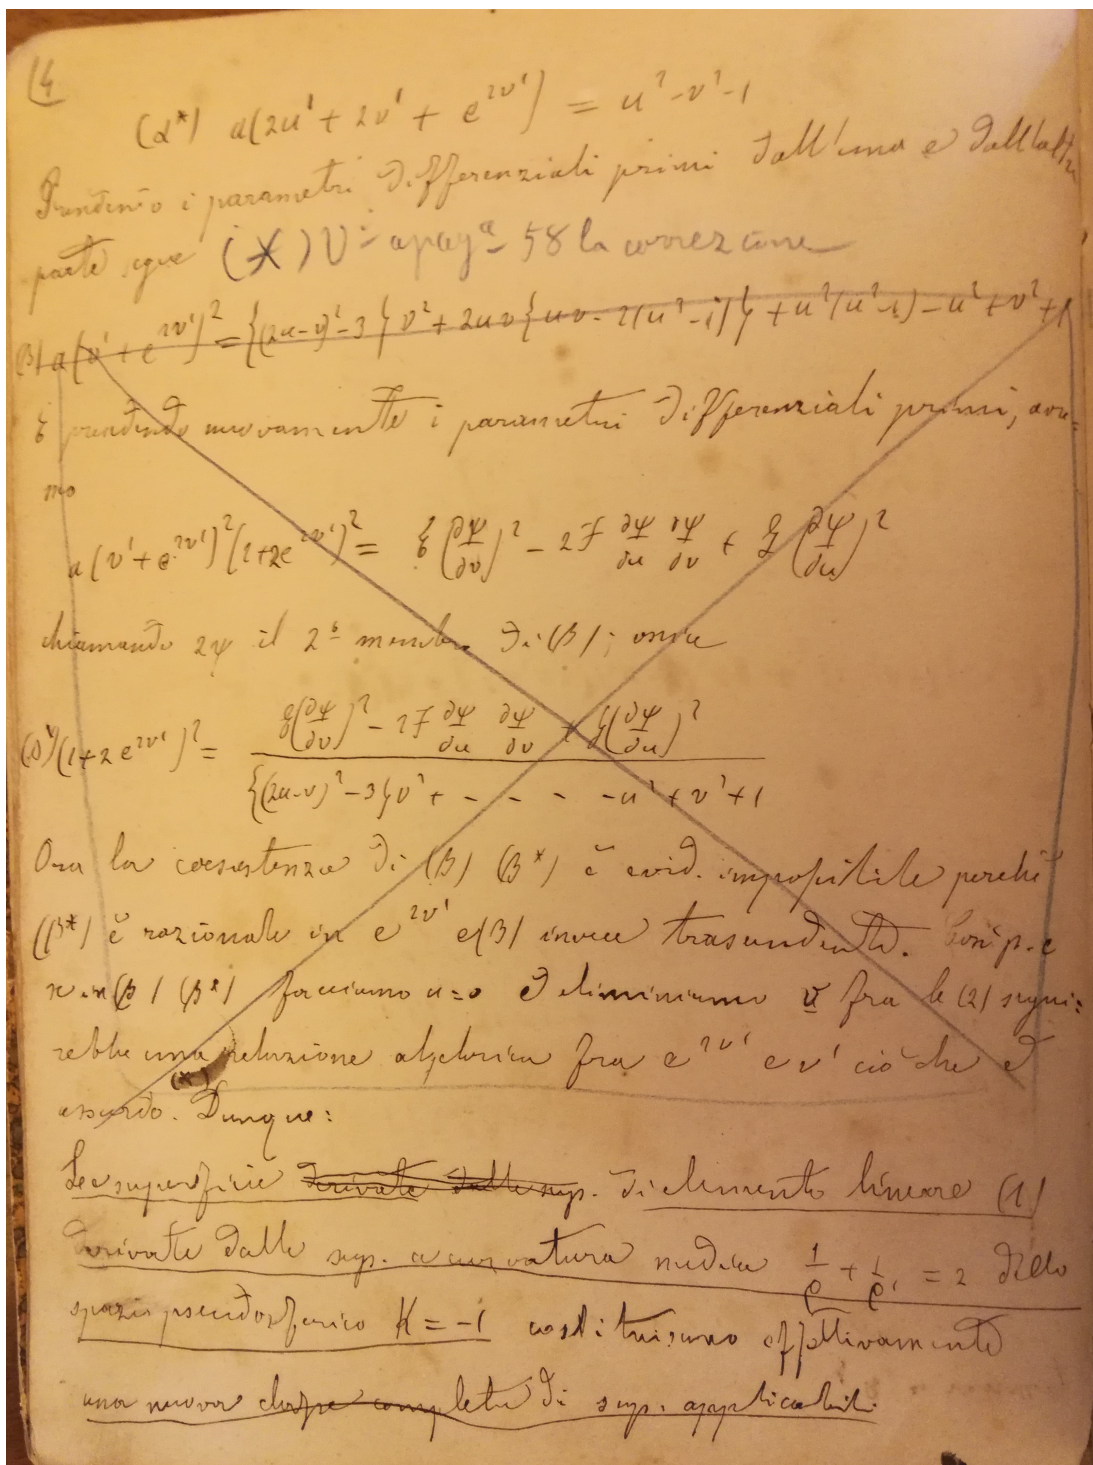 (4
(α*) a(2u' + 2v' + e^{2v'}) = u² - v² - 1
Prendendo i parametri differenziali primi dall'una e dall'altra
parte segue (X) V: a pagᵃ 58 la correzione
(β) a(v' + e^{2v'})² = {(2u-v)² - 3}v² + 2uv{uv - 2(u² - 1)} + u²(u² - 1) - u² + v² + 1
E prendendo nuovamente i parametri differenziali primi, avre-
mo
a(v' + e^{2v'})²(1+2e^{2v'})² = E(∂ψ/∂v)² - 2F ∂ψ/∂u ∂ψ/∂v + G(∂ψ/∂u)²
chiamando 2ψ il 2º membro di (β); onde
(β*) (1+2e^{2v'})² = E(∂ψ/∂v)² - 2F ∂ψ/∂u ∂ψ/∂v + G(∂ψ/∂u)² / {(2u-v)² - 3}v² + - - - - -u² + v² + 1
Ora la coesistenza di (β) (β*) è evid. impossibile perchè
(β*) è razionale in e^{2v'} e (β) invece trascendente. Così p. e
se in (β) (β*) facciamo u=0 ed eliminiamo v fra le (2) segui=
rebbe una relazione algebrica fra e^{2v'} e v' ciò che è
(x)
assurdo. Dunque:
Le superficie derivate dalle sup. di elemento lineare (1)
derivate dalle sup. a curvatura media 1/ρ + 1/ρ' = 2 dello
spazio pseudosferico K = -1 costituiscono effettivamente
una nuova classe completa di sup. applicabili.